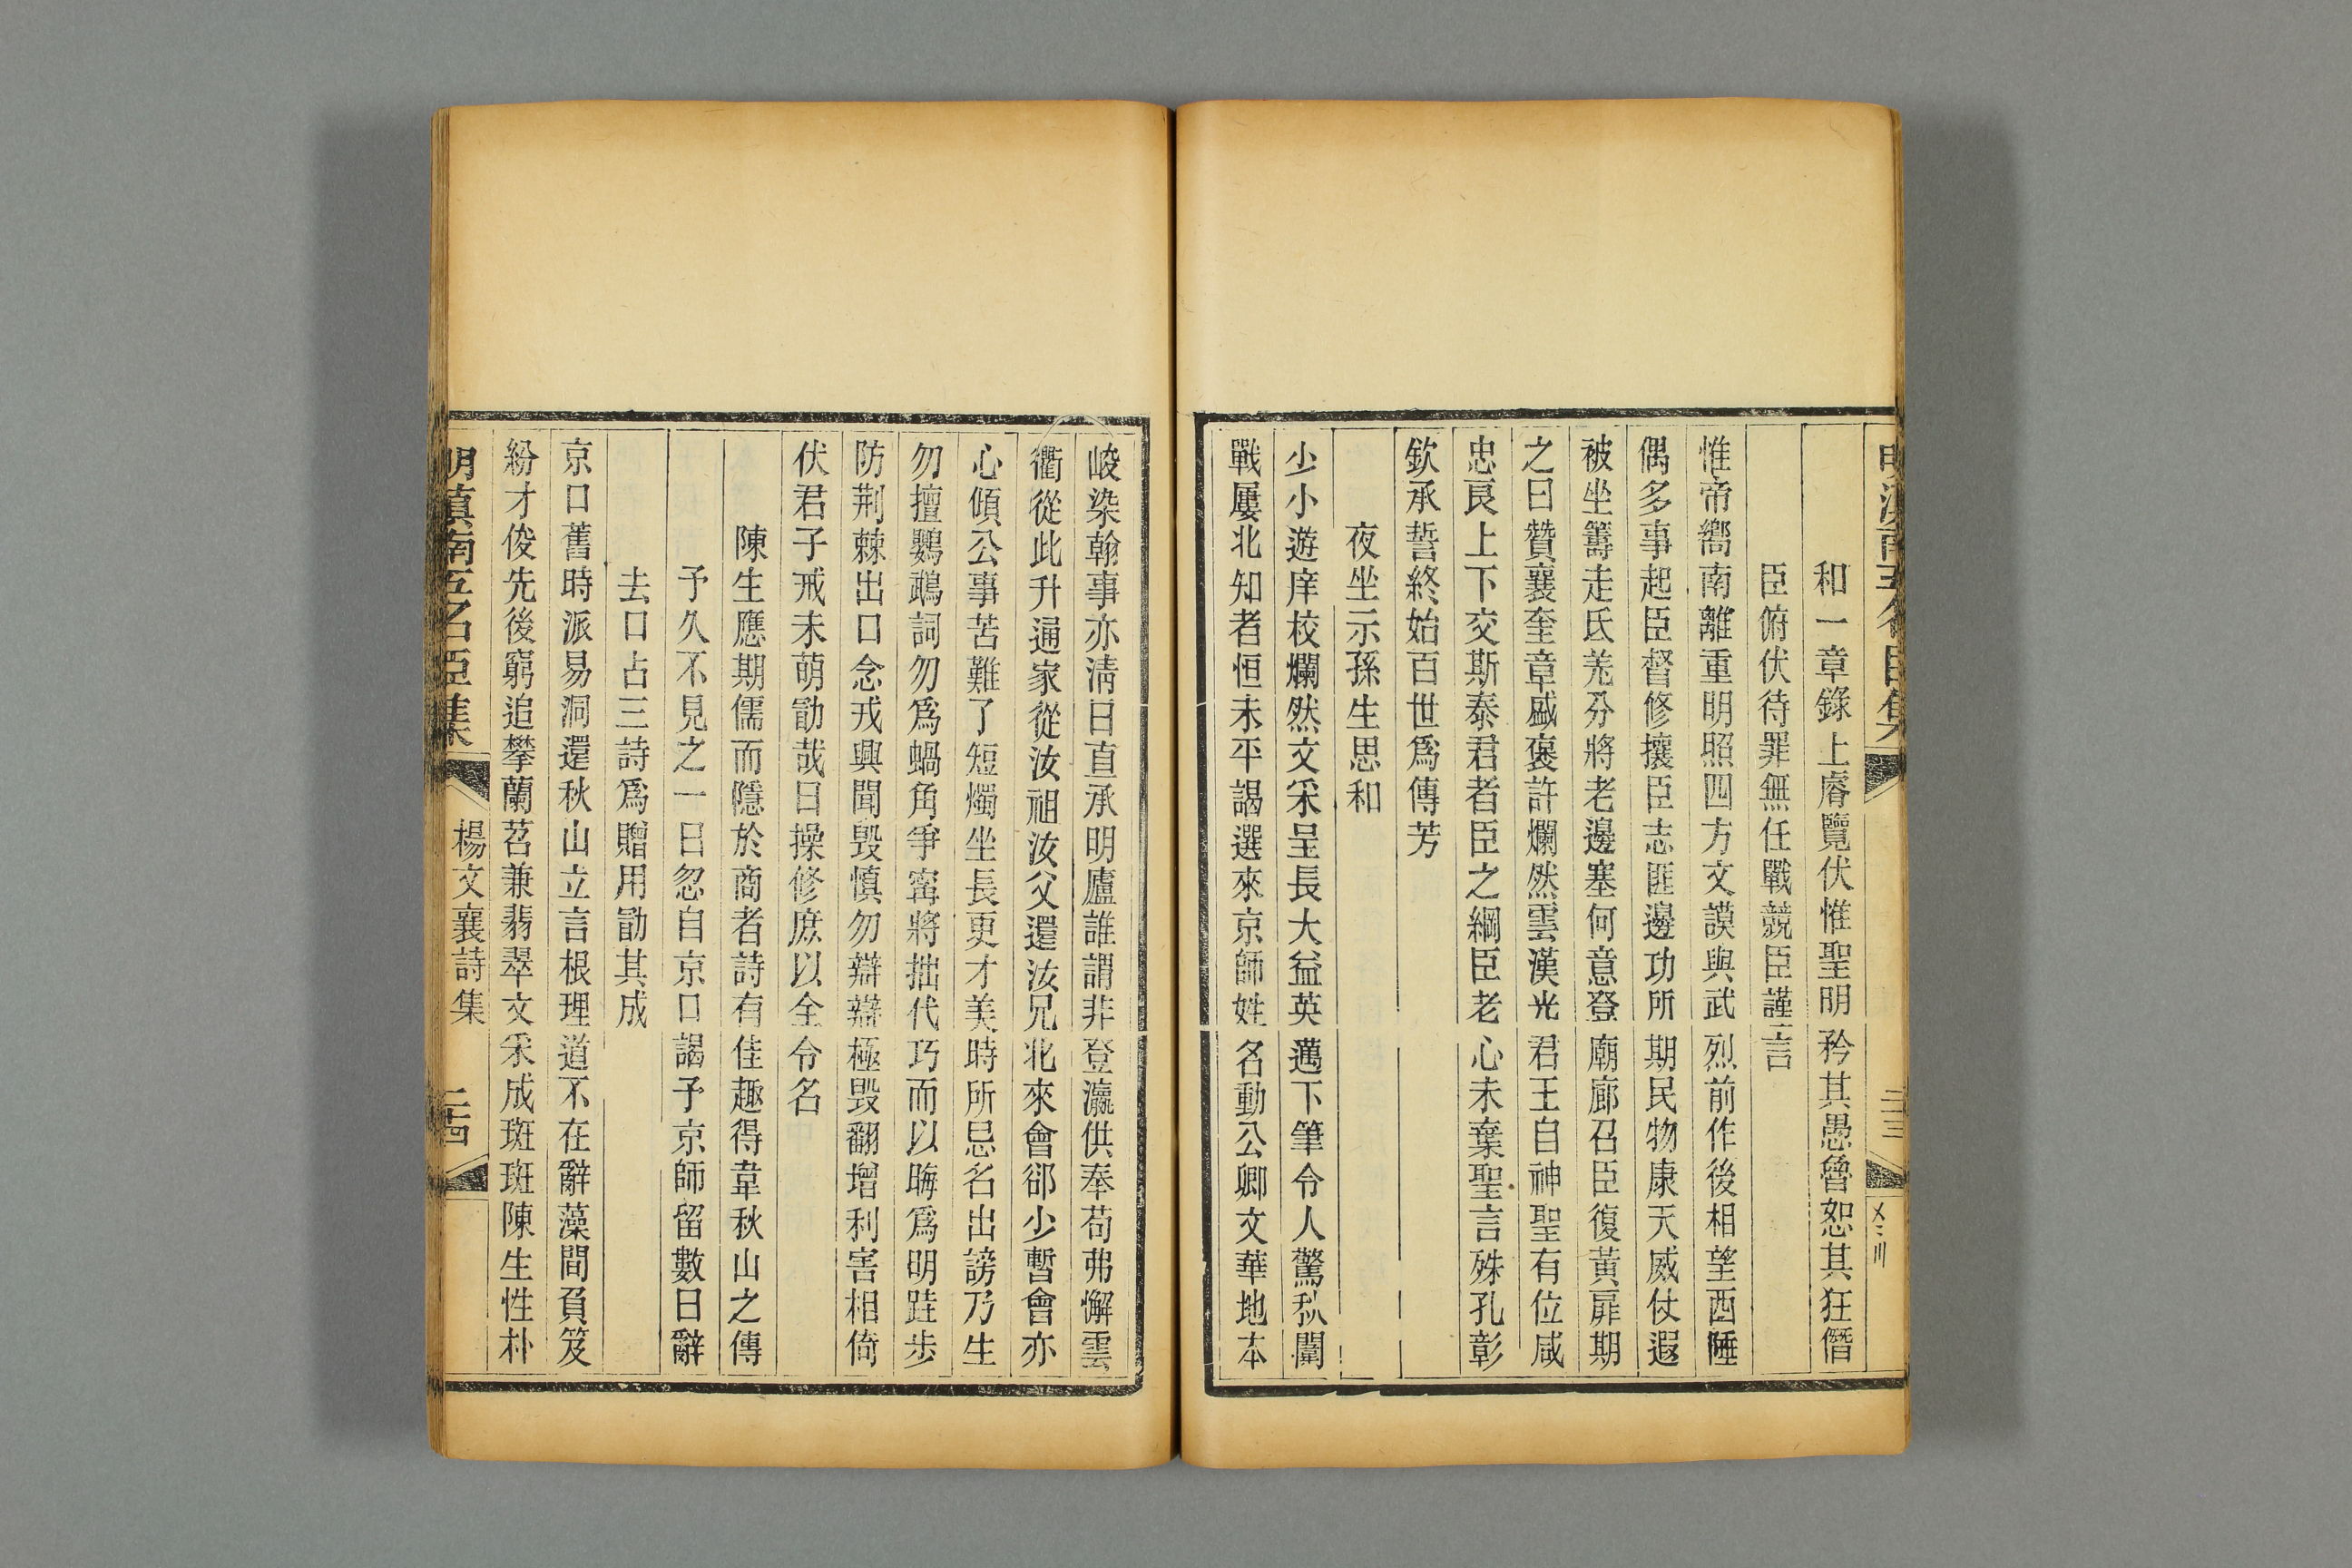 和一章錄上睿覽伏惟聖明矜其愚魯恕其狂僭
臣俯伏待罪無任戰競臣謹言
惟帝嚮南離重明照四方文謨與武烈前作後相望西陲
偶多事起臣督修攘臣志匪邊功所期民物康天威仗遐
被坐籌走氐羌分將老邊塞何意登廟廊召臣復黃扉期
之曰贊襄奎章盛褒許爛然雲漢光君王自神聖有位咸
忠良上下交斯泰君者臣之綱臣老心未棄聖言殊孔彰
欽承誓終始百世爲傳芳
夜坐示孫生思和
少小遊庠校爛然文采呈長大益英邁下筆令人驚秋闈
戰屢北知者恒未平謁選來京師姓名動公卿文華地本
峻染翰事亦淸日直承明廬誰謂非登瀛供奉苟弗懈雲
衢從此升通家從汝祖汝父還汝兄北來會郤少暫會亦
心傾公事苦難了短燭坐長更才美時所忌名出謗乃生
勿擅鸚鵡詞勿爲蝸角爭寗將拙代巧而以晦爲明跬步
防荆棘出口念戎興聞毁慎勿辯辯極毁翻增利害相倚
伏君子戒未萌勖哉日操修庶以全令名
陳生應期儒而隱於商者詩有佳趣得韋秋山之傳
予久不見之一日忽自京口謁予京師留數日辭
去口占三詩爲贈用勖其成
京口舊時派易洞還秋山立言根理道不在辭藻間負笈
紛才俊先後窮追攀蘭苕兼翡翠文采成斑斑陳生性朴
明滇南五名臣集
楊文襄詩集
二十四